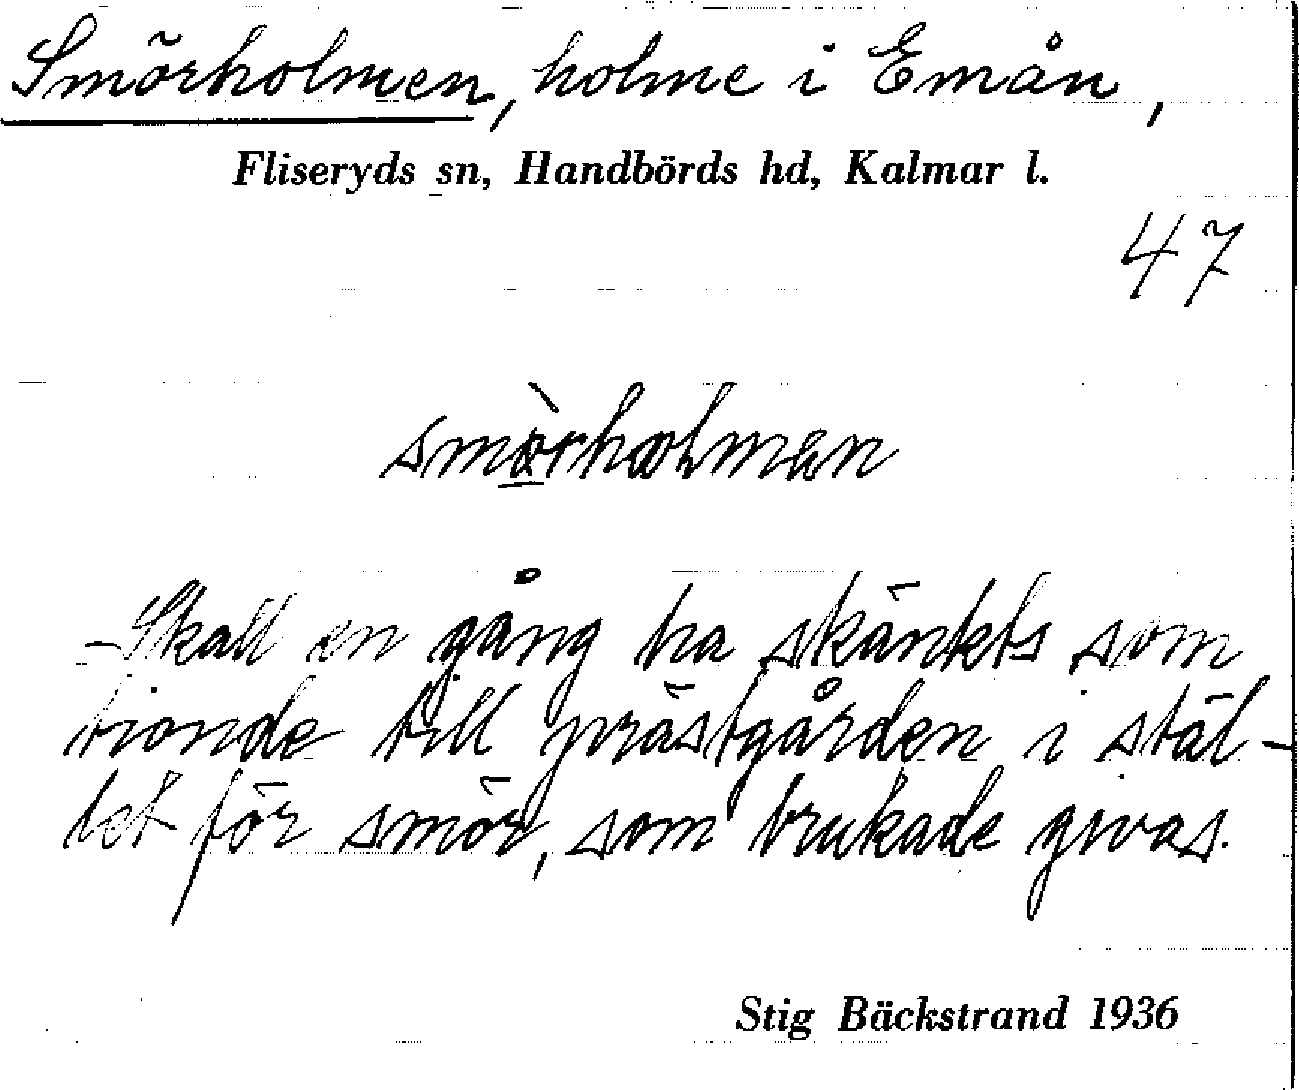 Smörholmen, holme i Emån,
Fliseryds sn, Handbörds hd, Kalmar l.
47
smòrholmen
- Skall en gång ha skänkts som
tionde till prästgården i stäl-
let för smör, som brukade givas.
Stig Bäckstrand 1936